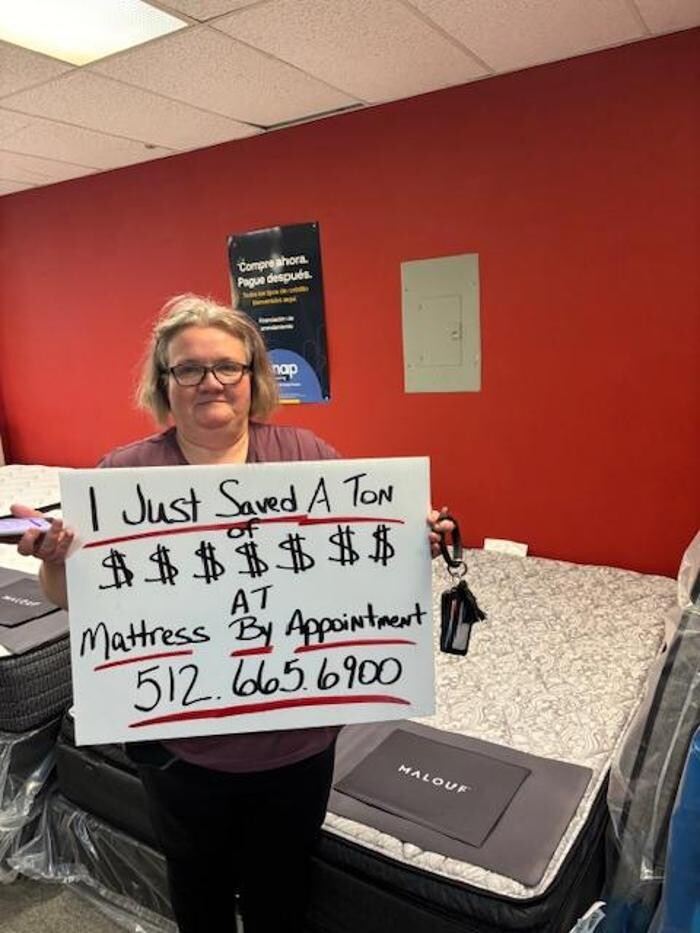 Compre ahora.
Pague después.
Todos los tipos de crédito
bienvenidos aquí.
Financiación de
arrendamiento
snap
I Just Saved A Ton
of
$ $ $ $ $ $ $
AT
Mattress By Appointment
512.665.6900
MALOUF
MALOUF